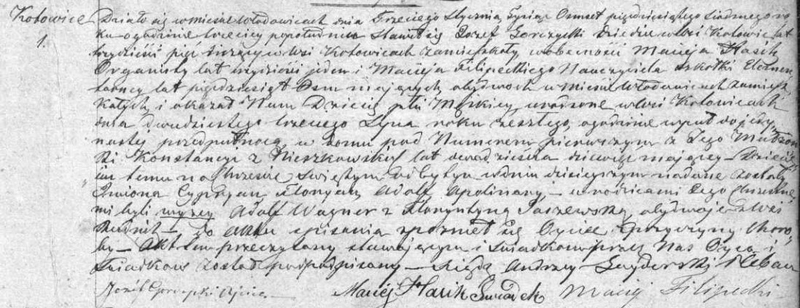 Kotowice Działo się w mieście Włodowicach dnia Trzeciego Stycznia Tysiąc Ośmset pięćdziesiątego siodmego ro-
1. ku o godzinie trzeciey popołudniu Stawił się Jozef Gorczycki Dziedzic wsi Kotowic lat
trzydzieści pięć liczący w wsi Kotowicach zamieszkały w obecności Macieja Hasik
Organisty lat trzydzieści jeden i Macieja Filipeckiego Nauczyciela szkołki Elemen-
tarney lat pięćdziesiąt Osm maiących obydwoch w mieście Włodowicach zamiesz-
kałych i okazał Nam Dziecię płci Męskiey urodzone w wsi Kotowicach
dnia dwudziestego trzeciego Lipca roku zeszłego, o godzinie
nastey przed połnocą w domu pod Numerem pierwszym z Jego Małżon-
ki Konstancyi z Mieszkowskich lat dwadzieścia dziewięć maiącey – Dziecię-
ciu temu na Chrzcie Świętym odbytym w dniu dzisieyszym nadane zostały
Imiona Cypryan Floryan Adolf Apolinary – a rodzicami Jego Chrzestne-
mi byli wyzey Adolf Wagner z Florentyną Paszewską obydwoje z Wsi
– Do Aktu spisania spoznił się Oyciec z przyczyny choro-
by – Akt ten przeczytany stawaiącym i Świadkom przez Nas Oyca i
Swiadkow został podpisany – Xiądz Andrzey Pleban
Jozef Gorczycki Oyciec Maciej Hasik Świadek Maciej Filipecki